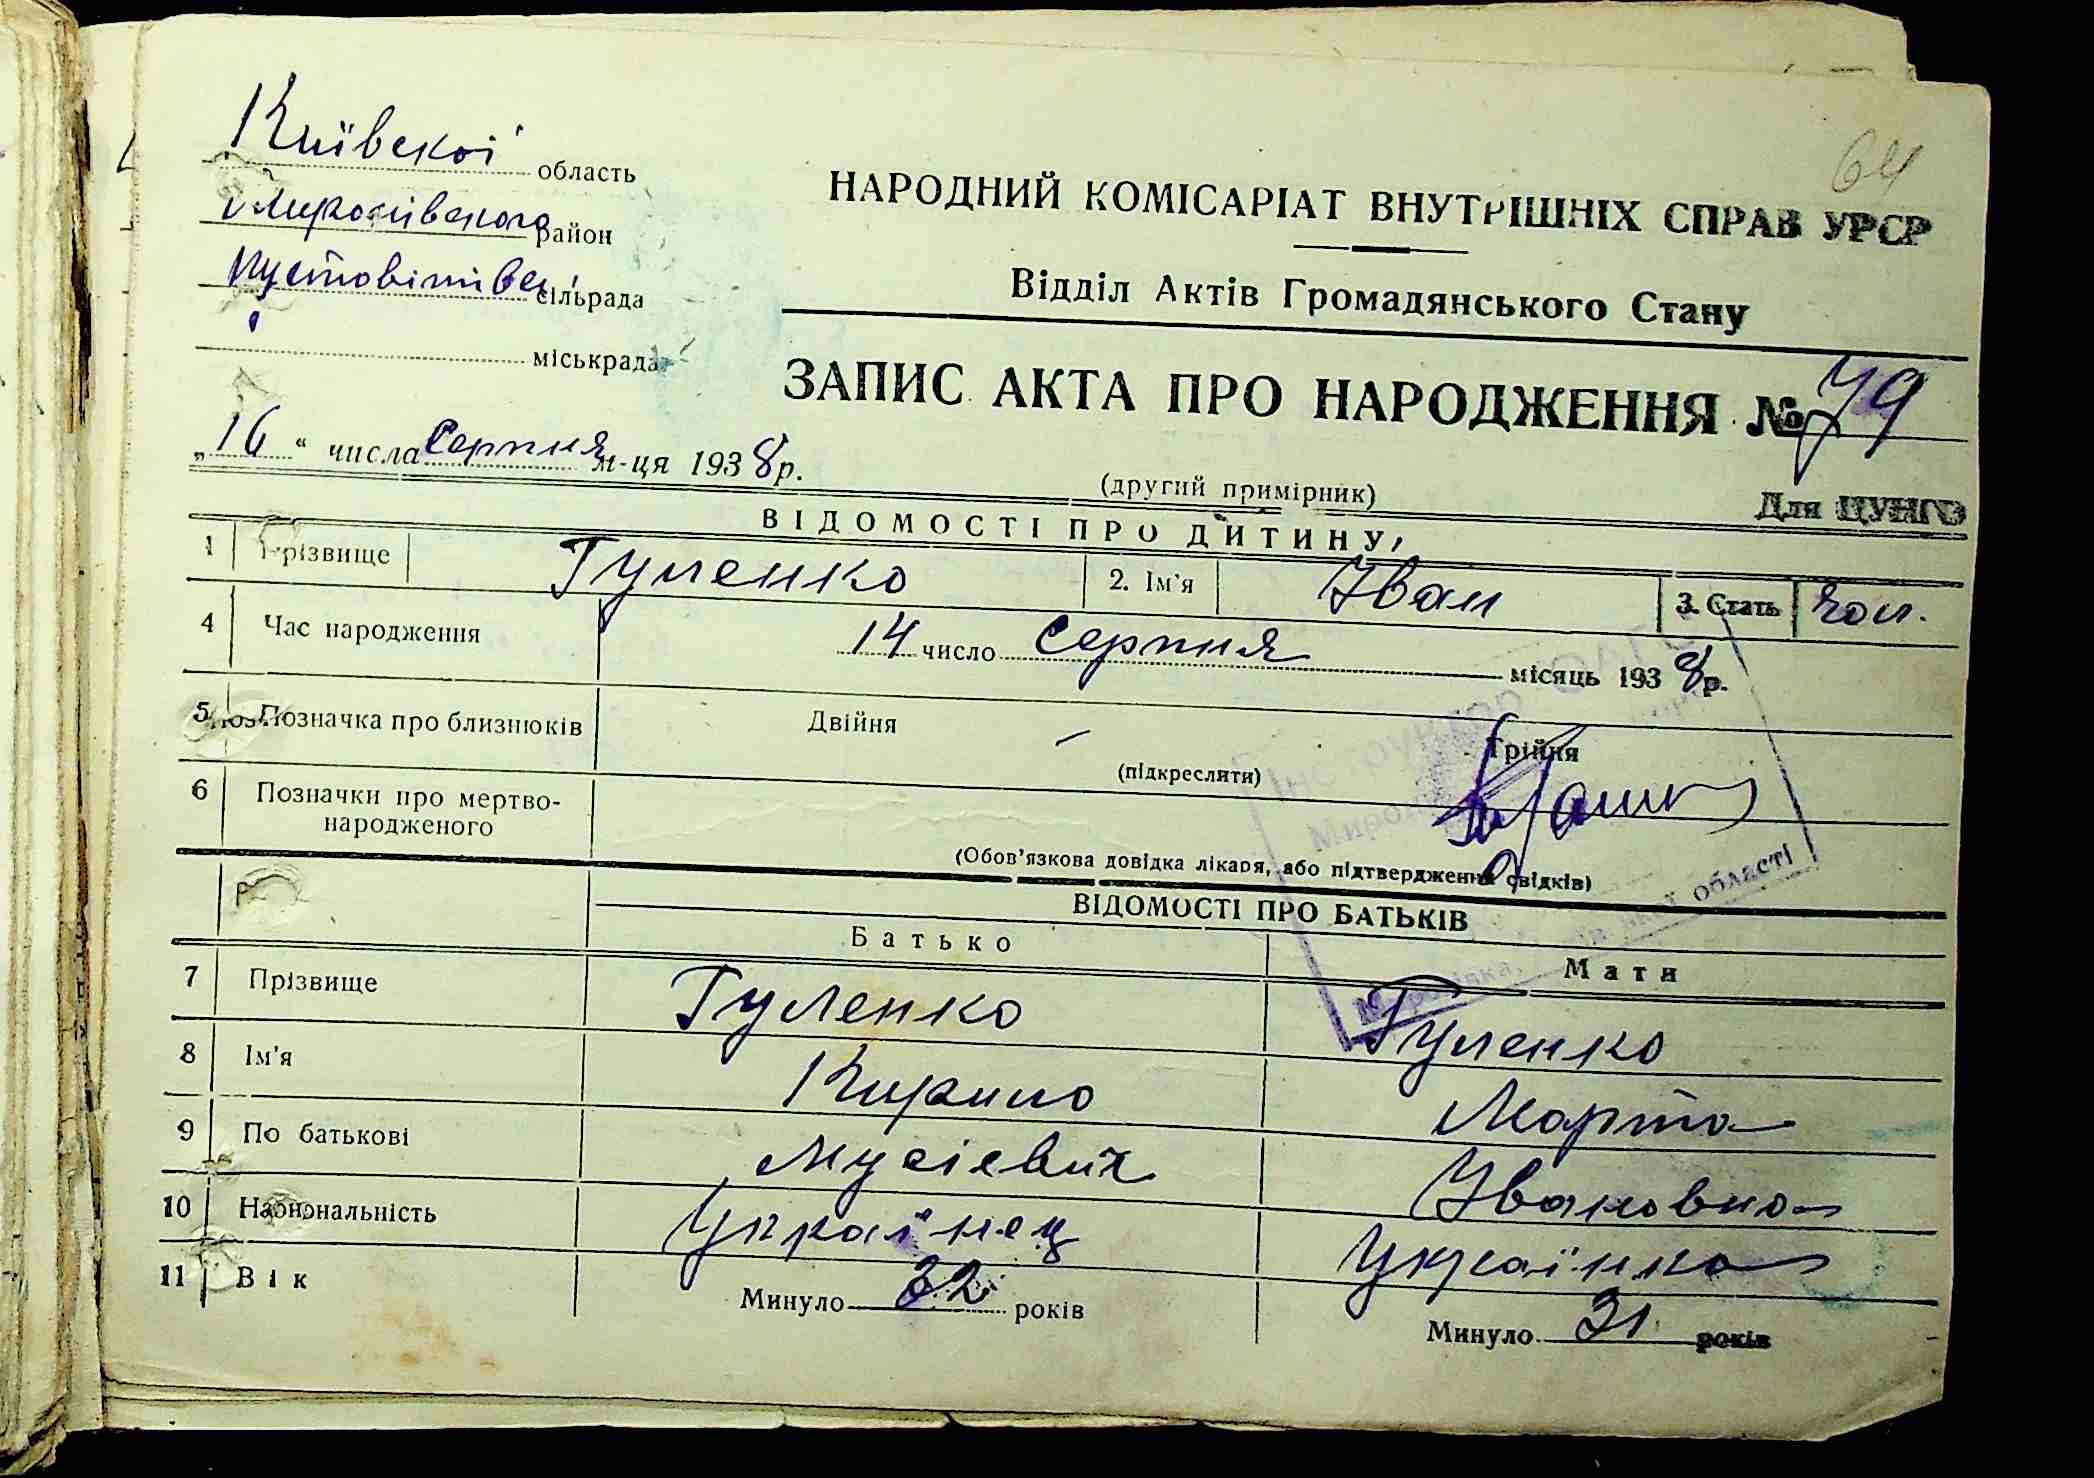 64
Київської область
Миронівського район
Пустовітівс. сільрада
міськрада
НАРОДНИЙ КОМІСАРІАТ ВНУТРІШНІХ СПРАВ УРСР
Відділ Актів Громадянського Стану
ЗАПИС АКТА ПРО НАРОДЖЕННЯ № 79
„16“ числа Серпня м-ця 1938 р.
(другий примірник)
Для ЦУНГО
ВІДОМОСТІ ПРО ДИТИНУ
1 Прізвище Гуленко 2. Ім'я Іван 3. Стать чол.
4 Час народження 14 число Серпня місяць 1938 р.
5 Позначка про близнюків Двійня – Трійня
(підкреслити)
6 Позначки про мертво-
народженого
(Обов'язкова довідка лікаря, або підтвердження свідків)
Інструктор ОАГС
області
ВІДОМОСТІ ПРО БАТЬКІВ
Батько Мати
7 Прізвище Гуленко Гуленко
8 Ім'я Кирило Марта
9 По батькові Мусієвич Івановна
10 Національність Українец Українка
11 Вік Минуло 32 років Минуло 31 років